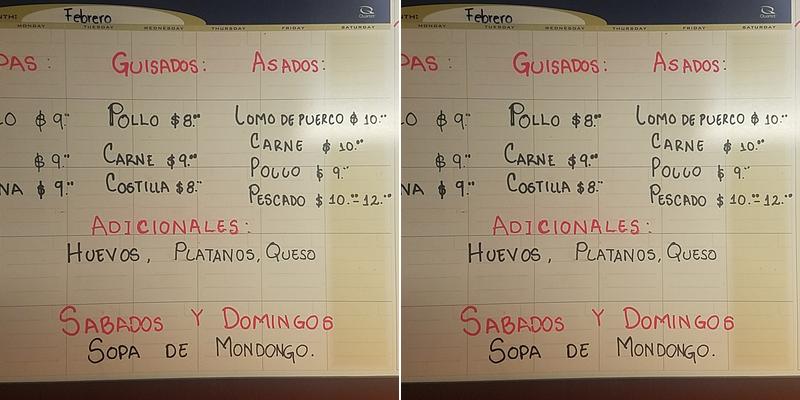 NTH: Febrero
MONDAY TUESDAY WEDNESDAY THURSDAY FRIDAY SATURDAY
Quartet
PAS: GUISADOS: ASADOS:
LO $ 9.00 POLLO $ 8.00 LOMO DE PUERCO $ 10.00
CARNE $ 10.00
$ 9.00 CARNE $ 9.00 POLLO $ 9.00
NA $ 9.00 COSTILLA $ 8.00 PESCADO $ 10.00 12.00
ADICIONALES:
HUEVOS, PLATANOS, QUESO
SABADOS Y DOMINGOS
SOPA DE MONDONGO.
Febrero
MONDAY TUESDAY WEDNESDAY THURSDAY FRIDAY SATURDAY
Quartet
PAS: GUISADOS: ASADOS:
LO $ 9.00 POLLO $ 8.00 LOMO DE PUERCO $ 10.00
CARNE $ 10.00
$ 9.00 CARNE $ 9.00 POLLO $ 9.00
NA $ 9.00 COSTILLA $ 8.00 PESCADO $ 10.00 12.00
ADICIONALES:
HUEVOS, PLATANOS, QUESO
SABADOS Y DOMINGOS
SOPA DE MONDONGO.